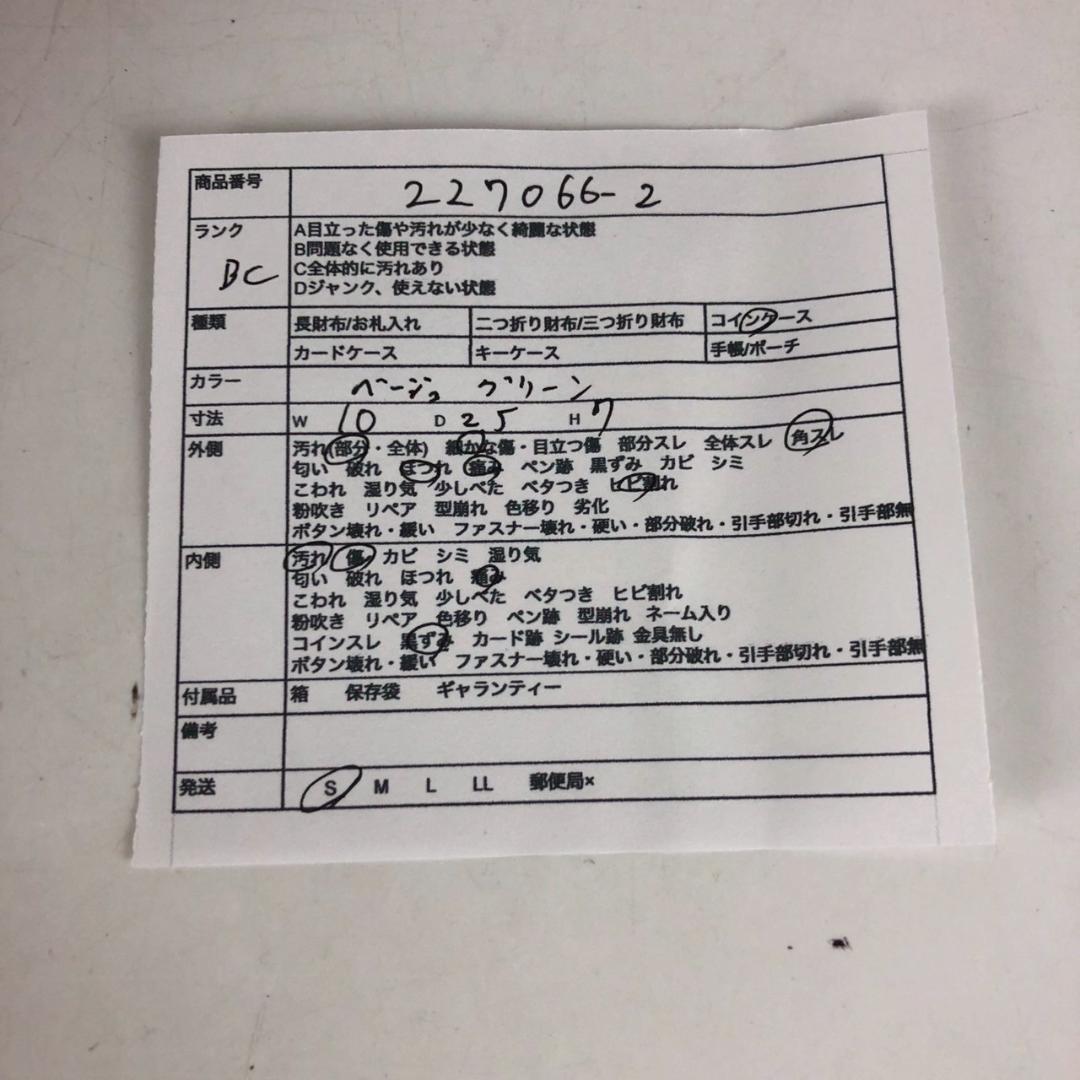 商品番号 227066-2
ランク BC
A目立った傷や汚れが少なく綺麗な状態
B問題なく使用できる状態
C全体的に汚れあり
Dジャンク、使えない状態
種類 長財布/お札入れ 二つ折り財布/三つ折り財布 コインケース
カードケース キーケース 手帳/ポーチ
カラー ベージュ グリーン
寸法 W 10 D 25 H 7
外側 汚れ(部分・全体) 細かな傷・目立つ傷 部分スレ 全体スレ 角スレ
匂い 破れ ほつれ 痛み ペン跡 黒ずみ カビ シミ
こわれ 湿り気 少しべた ベタつき ヒビ割れ
粉吹き リペア 型崩れ 色移り 劣化
ボタン壊れ・緩い ファスナー壊れ・硬い・部分破れ・引手部切れ・引手部無
内側 汚れ 傷 カビ シミ 湿り気
匂い 破れ ほつれ 痛み
こわれ 湿り気 少しべた ベタつき ヒビ割れ
粉吹き リペア 色移り ペン跡 型崩れ ネーム入り
コインスレ 黒ずみ カード跡 シール跡 金具無し
ボタン壊れ・緩い ファスナー壊れ・硬い・部分破れ・引手部切れ・引手部無
付属品 箱 保存袋 ギャランティー
備考
発送 S M L LL 郵便局×